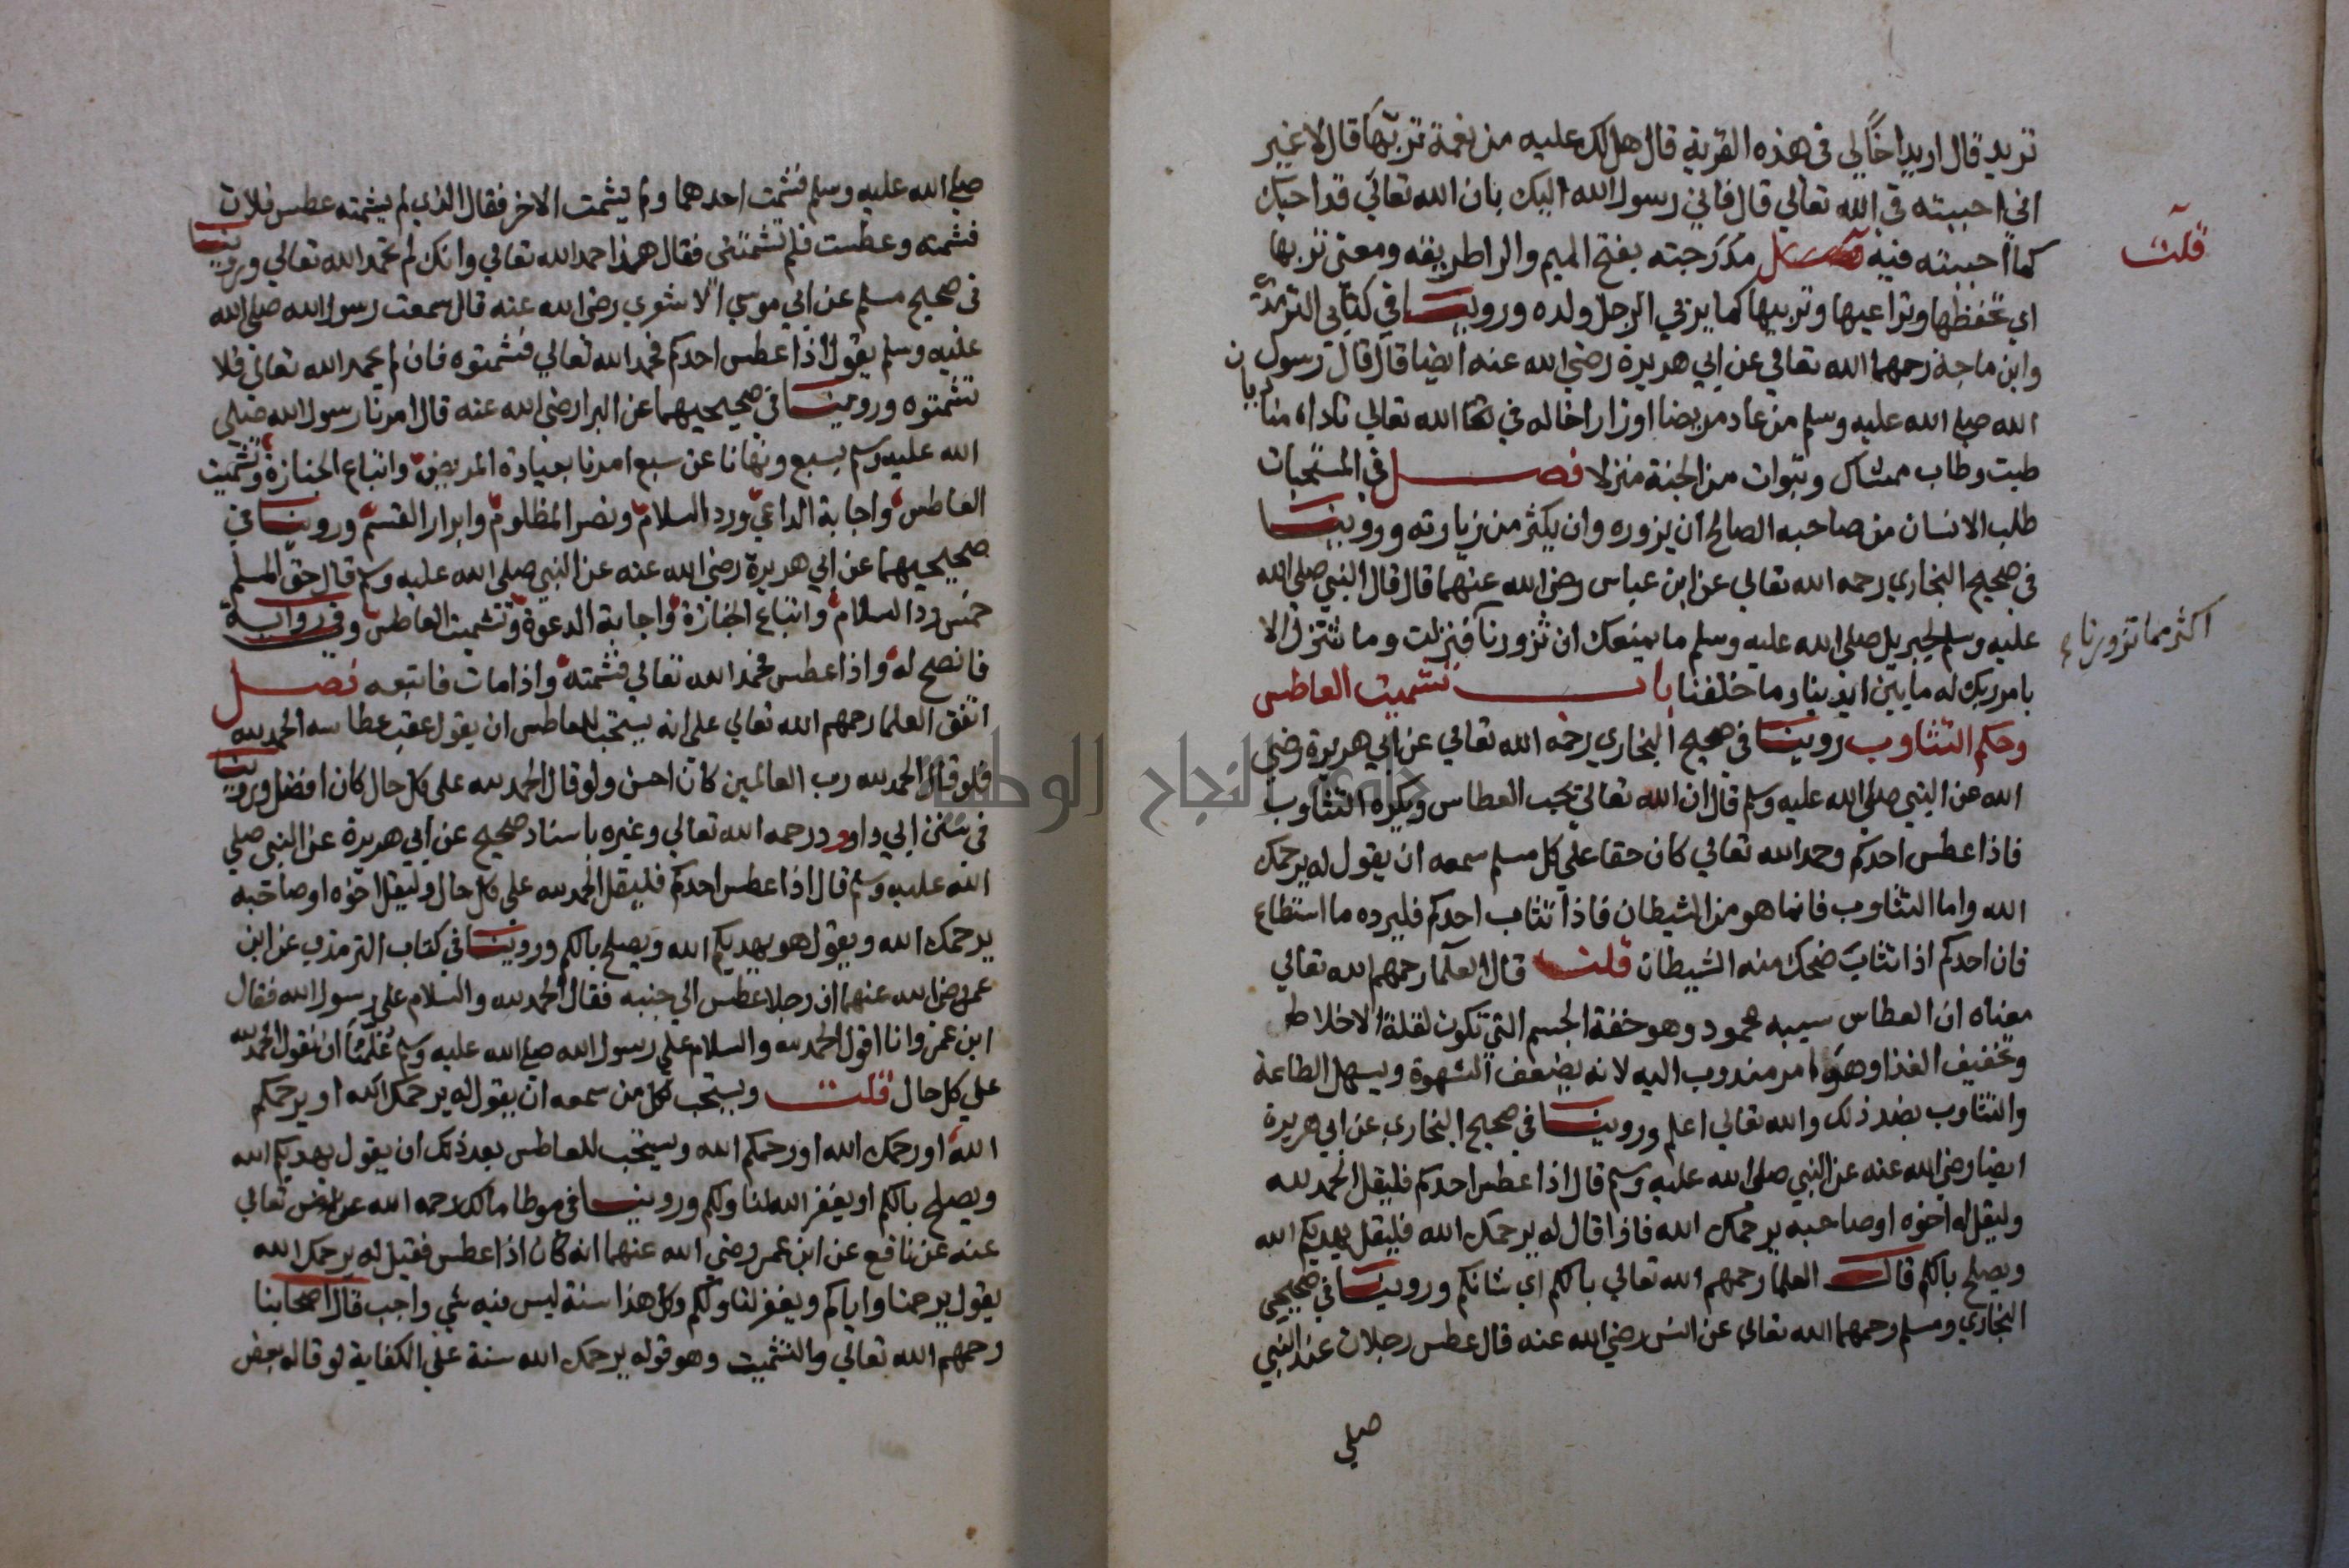 تريد قال اريد اخا لي في هذه القرية قال هل لك عليه من نعمة تربها قال لا غير
اني احببته في الله تعالي قال فاني رسول الله اليك بان الله تعالي قد احبك
كما احببته فيه مدرجته بفتح الميم والرا طريقه ومعني تربها
قلت
اي تحفظها وتراعيها وتربيها كما يربي الرجل ولده وروينا في كتابي الترمذي
وابن ماجة رحمهما الله تعالي عن ابي هريرة رضي الله عنه ايضا قال قال رسول
الله صلي الله عليه وسلم من عاد مريضا او زار اخا له في الله تعالي ناداه مناد بان
طبت وطاب ممشاك وتبوات من الجنة منزلا فصل في المستحبات
طلب الانسان من صاحبه الصالح ان يزوره وان يكثر من زيارته وروينا
في صحيح البخاري رحمه الله تعالي عن ابن عباس رضي الله عنهما قال قال النبي صلي الله
عليه وسلم لجبريل صلي الله عليه وسلم ما يمنعك ان تزورنا فنزلت وما نتنزل الا
اكثر مما تزورنا
بامر ربك له ما بين ايدينا وما خلفنا باب تشميت العاطس
وحكم التثاوب روينا في صحيح البخاري رحمه الله تعالي عن ابي هريرة رضي
الله عن النبي صلي الله عليه وسلم قال ان الله تعالي يحب العطاس ويكره التثاوب
فاذا عطس احدكم وحمد الله تعالي كان حقا علي كل مسلم سمعه ان يقول له يرحمك
الله واما التثاوب فانما هو من الشيطان فاذا تثاب احدكم فليرده ما استطاع
فان احدكم اذا تثاب ضحك منه الشيطان قلت قال العلما رحمهم الله تعالي
معناه ان العطاس سببه محمود وهو خفة الجسم التي تكون لقلة الاخلاط
وتخفيف الغذا وهو امر مندوب اليه لانه يضعف الشهوة ويسهل الطاعة
والتثاوب بضد ذلك والله تعالي اعلم وروينا في صحيح البخاري عن ابي هريرة
ايضا رضي الله عنه عن النبي صلي الله عليه وسلم قال اذا عطس احدكم فليقل الحمد لله
وليقل له اخوه او صاحبه يرحمك الله فاذا قال له يرحمك الله فليقل يهديكم الله
ويصلح بالكم قال العلما رحمهم الله تعالي بالكم اي شانكم وروينا في صحيحي
البخاري ومسلم رحمهما الله تعالي عن انس رضي الله عنه قال عطس رجلان عند النبي
صلي
صلي الله عليه وسلم فشمت احدهما ولم يشمت الاخر فقال الذي لم يشمته عطس فلان
فشمته وعطست فلم تشمتني فقال هذا حمد الله تعالي وانك لم تحمد الله تعالي وروينا
في صحيح مسلم عن ابي موسي الاشعري رضي الله عنه قال سمعت رسول الله صلي الله
عليه وسلم يقول اذا عطس احدكم فحمد الله تعالي فشمتوه فان لم يحمد الله تعالي فلا
تشمتوه وروينا في صحيحيهما عن البرا رضي الله عنه قال امرنا رسول الله صلي
الله عليه وسلم بسبع ونهانا عن سبع امرنا بعيادة المريض واتباع الجنازة وتشميت
العاطس واجابة الداعي ورد السلام ونصر المظلوم وابرار القسم وروينا في
صحيحيهما عن ابي هريرة رضي الله عنه عن النبي صلي الله عليه وسلم قال حق المسلم
خمس رد السلام واتباع الجنازة واجابة الدعوة وتشميت العاطس وفي رواية
فانصح له واذا عطس فحمد الله تعالي فشمته واذا مات فاتبعه فصل
اتفق العلما رحمهم الله تعالي علي انه يستحب للعاطس ان يقول عقب عطاسه الحمد لله
فلو قال الحمد لله رب العالمين كان احسن ولو قال الحمد لله علي كل حال كان افضل وروينا
في سنن ابي داوود رحمه الله تعالي وغيره باسناد صحيح عن ابي هريرة عن النبي صلي
الله عليه وسلم قال اذا عطس احدكم فليقل الحمد لله علي كل حال وليقل اخوه او صاحبه
يرحمك الله ويقول هو يهديكم الله ويصلح بالكم وروينا في كتاب الترمذي عن ابن
عمر رضي الله عنهما ان رجلا عطس الي جنبه فقال الحمد لله والسلام علي رسول الله فقال
ابن عمر وانا اقول الحمد لله والسلام علي رسول الله صلي الله عليه وسلم علمنا ان نقول الحمد لله
علي كل حال قلت ويستحب لكل من سمعه ان يقول له يرحمك الله او يرحمكم
الله او رحمك الله او رحمكم الله ويستحب للعاطس بعد ذلك ان يقول يهديكم الله
ويصلح بالكم او يغفر الله لنا ولكم وروينا في موطا مالك رحمه الله تعالي
عنه عن نافع عن ابن عمر رضي الله عنهما انه كان اذا عطس فقيل له يرحمك الله
يقول يرحمنا واياكم ويغفر لنا ولكم وكل هذا سنة ليس فيه شي واجب قال اصحابنا
رحمهم الله تعالي والتشميت وهو قوله يرحمك الله سنة علي الكفاية لو قاله بعض